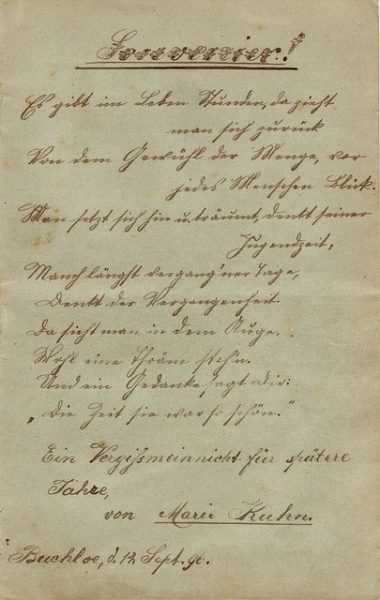 Es gibt im Leben Stunden, da zieht
man sich zurück
Von dem Gewühl der Menge, vor
jedes Menschen Blick.
Man setzt sich hin u. träumt, denkt seiner
Jugendzeit,
Manch längst vergang'ner Tage,
Denkt der Vergangenheit
Da sieht man in dem Auge,
Wohl eine Thräne stehn.
Und ein Gedanke sagt dir:
„Die Zeit sie war so schön."
Ein Vergißmeinnicht für spätere
Jahre,
von Marie Kuhn.
Buchloe, d. 12. Sept. 90.